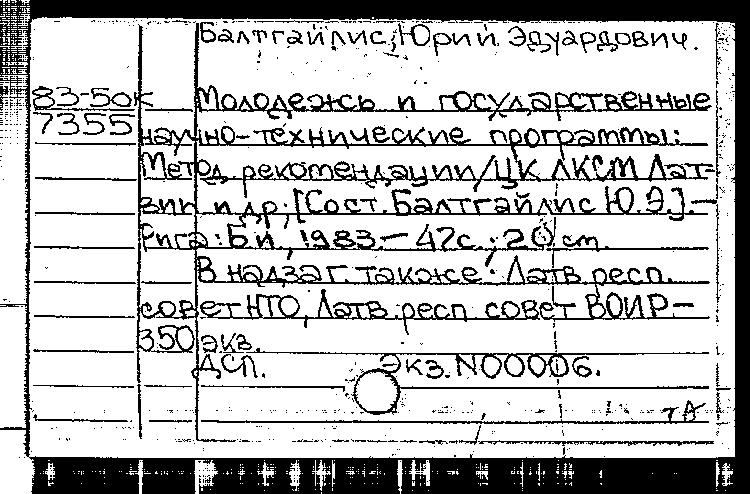 Балтгайлис, Юрий Эдуардович.
83-50к
7355
Молодежь и государственные
научно-технические программы:
Метод рекомендации/ЦК ЛКСМ Лат-
вии и др; [Сост. Балтгайлис Ю.Э.].—
Рига: Б и, 1983.— 47с.; 20 см.
В надзаг. также: Латв. респ.
совет НТО, Латв. респ совет ВОИР—
350 экз.
ДСП. Экз. N00006.